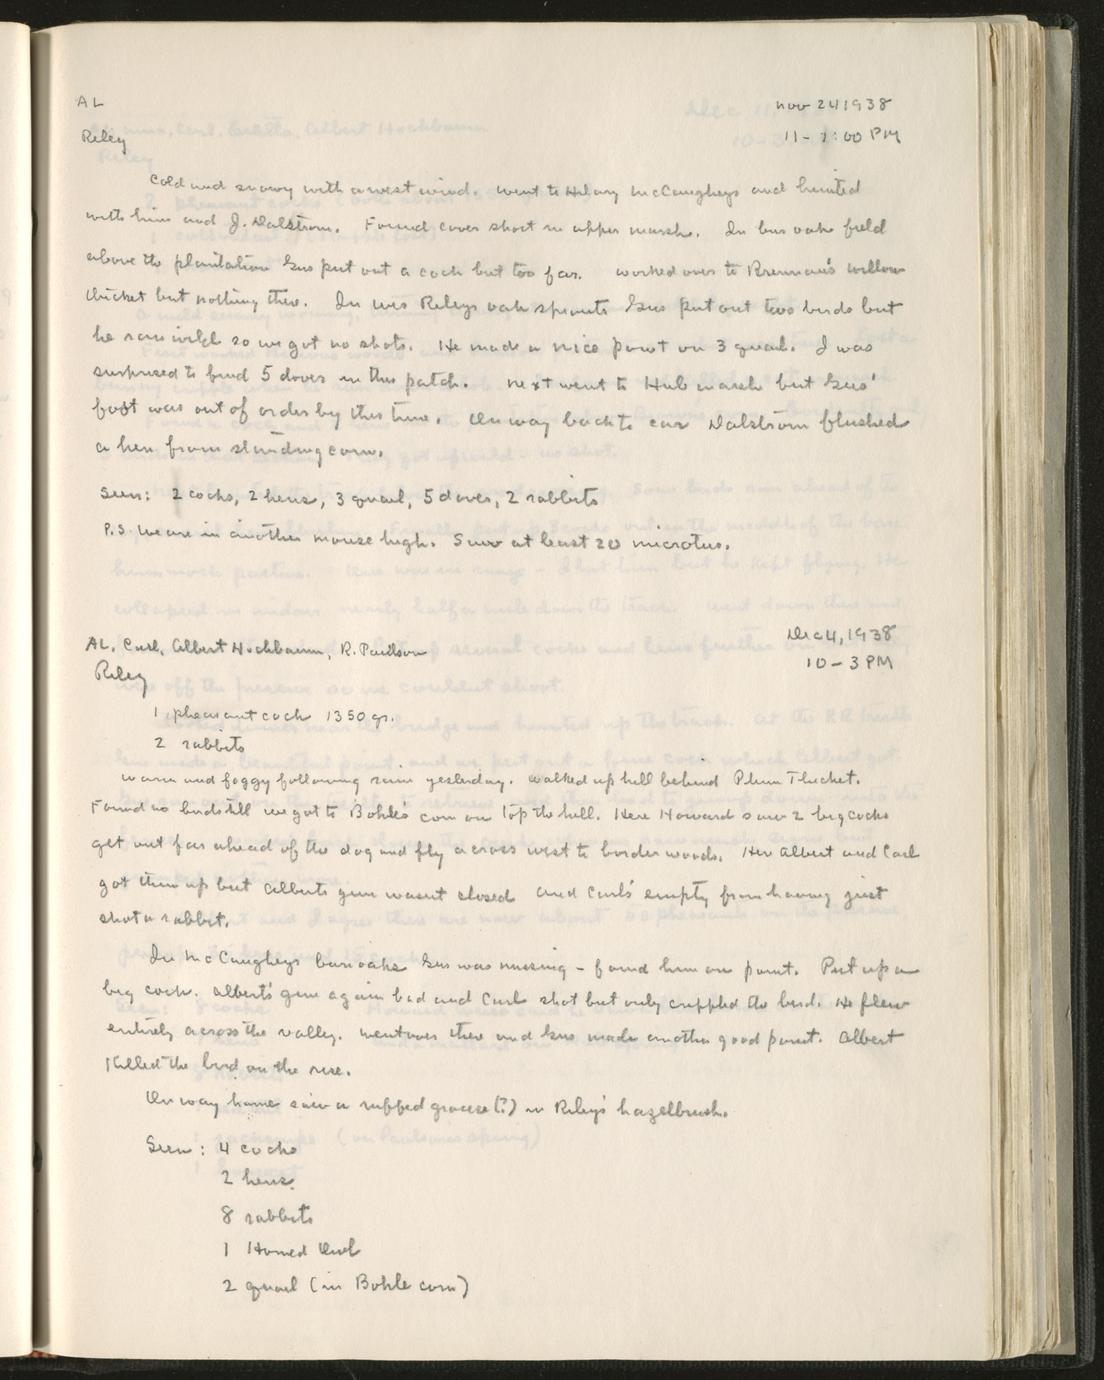 AL
Riley
Nov 24 1938
11 - 2:00 PM
Cold and snowy with a west wind. Went to Hilary McCaugheys and hunted
with him and J. Dalstrom. Found cover short in upper marsh. In bur oak field
above the plantation Gus put out a cock but too far. Worked over to Brennan's willow
thicket but nothing there. In Riley's oak sprouts Gus put out two birds but
he ran wild so we got no shots. He made a nice point on 3 quail. I was
surprised to find 5 doves in this patch. Next went to Hub marsh but Gus'
foot was out of order by this time. On way back to car Dalstrom flushed
a hen from standing corn.
Seen: 2 cocks, 2 hens, 3 quail, 5 doves, 2 rabbits
P.S. We are in another mouse high. Saw at least 20 microtus.
AL, Carl, Albert Hochbaum, R. Paulson
Riley
Dec 4, 1938
10 - 3 PM
1 pheasant cock 1350 gr.
2 rabbits
Warm and foggy following rain yesterday. Walked up hill behind Plum Thicket.
Found no birds till we got to Bohle's corn on top the hill. Here Howard saw 2 big cocks
get out far ahead of the dog and fly across west to border woods. Here Albert and Carl
got them up but Alberts gun wasnt closed and Carl's empty from having just
shot a rabbit.
In McCaugheys bur oaks Gus was missing - found him on point. Put up a
big cock. Albert's gun again bad and Carl shot but only crippled the bird. He flew
entirely across the valley. Went over there and Gus made another good point. Albert
killed the bird on the rise.
On way home saw a ruffed grouse (?) in Riley's hazelbrush.
Seen: 4 cocks
2 hens
8 rabbits
1 Horned Owl
2 quail (in Bohle corn)